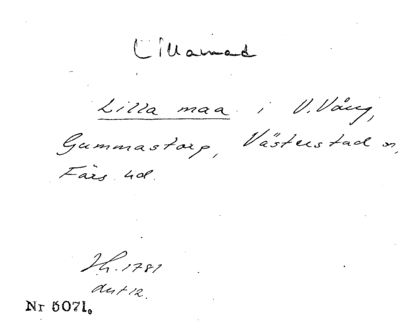 Lillamad
Lilla maa i V. Vång,
Gummastorp, Västerstad sn,
Färs hd.
Jh. 1781
akt 12.
Nr 5071.